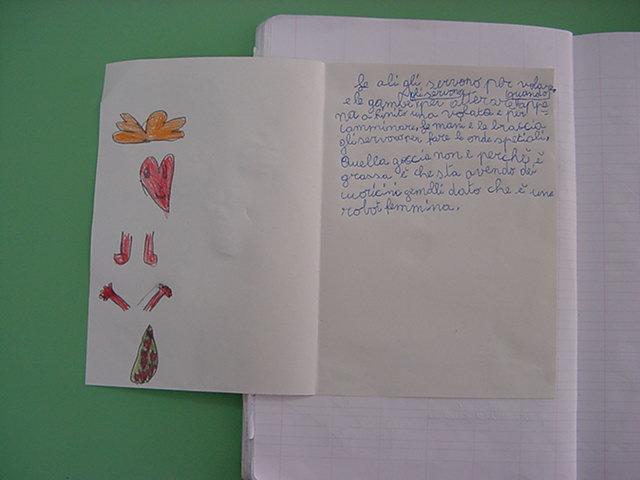 Le ali gli servono per volare,
e le gambe gli servono per atterrare quando appe
na a finito una volata e per
camminare, le mani e le braccia
gli servono per fare le onde speciali.
Quella goccia non è perchè è
grassa è che sta avendo dei
cuoricini gemelli dato che è una
robot femmina.